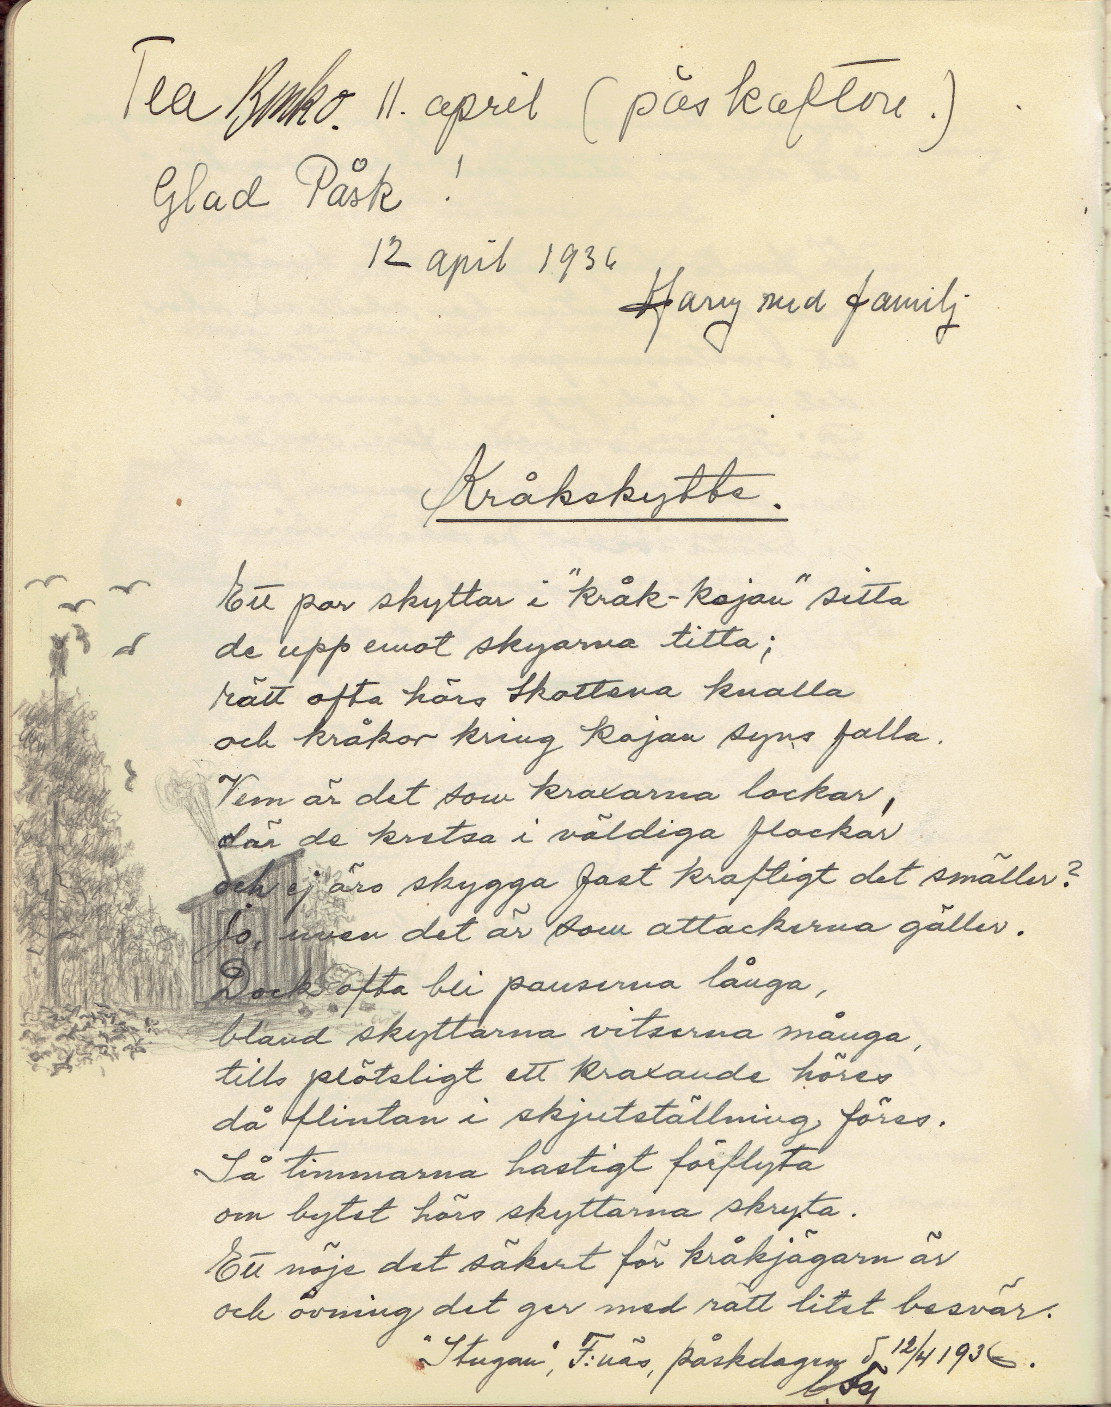 Tea 11. april (påskafton.)
Glad Påsk!
12 april 1936
Harry med familj
Kråkskytte.
Ett par skyttar i "kråk-kojan" sitta
de upp emot skyarna titta;
rätt ofta hörs skottena knalla
och kråkor kring kojan syns falla.
Vem är det som kraxarna lockar,
där de kretsa i väldiga flockar
och ej äro skygga fast kraftigt det smäller?
Jo, uven det är som attackerna gäller.
Dock ofta bli pauserna långa,
bland skyttarna vitserna många,
tills plötsligt ett kraxande höres
då flintan i skjutställning föres.
Så timmarna hastigt förflyta
om bytet hörs skyttarna skryta.
Ett nöje det säkert för kråkjägarn är
och övning det ger med rätt litet besvär.
"Stugan", F:näs, påskdagen d. 12/4 1936.